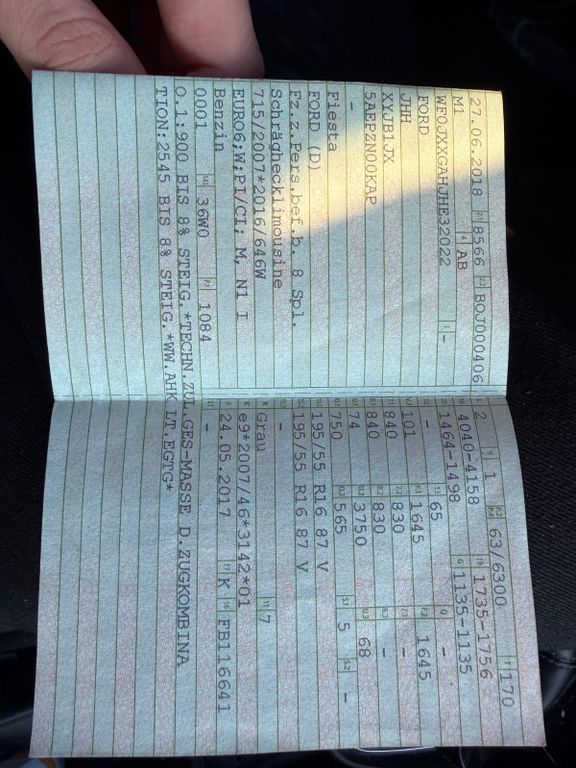 27.06.2018 2.1 8566 2.2 BOJ000406
M1 4 AB
WF0JXXGAHJHE32022 3 -
FORD
JHH
XYJB1JX
5AEPZN00KAP
-
Fiesta
FORD (D)
Fz.z.Pers.bef.b. 8 Spl.
Schräghecklimousine
715/2007*2016/646W
EURO6;W;PI/CI; M, N1 I
Benzin
0001 36W0 1084
O.1:900 BIS 8% STEIG.*TECHN.ZUL.GES-MASSE D.ZUGKOMBINA
TION:2545 BIS 8% STEIG.*WW.AHK LT.EGTG*
L 2 9 1 P.2 P.4 63/6300 T 170
18 4040-4158 19 1735-1756
20 1464-1498 G 1135-1135
12 - 13 65 Q -
V.7 101 F.1 1645 F.2 1645
7.1 840 7.2 830 7.3 -
8.1 840 8.2 830 8.3 -
U.1 74 U.2 3750 U.3 68
O.1 750 O.2 565 S.1 5 S.2 -
15.1 195/55 R16 87 V
15.2 195/55 R16 87 V
15.3 -
R Grau 11 7
K e9*2007/46*3142*01
6 24.05.2017 17 K 16 FB116641
21 -